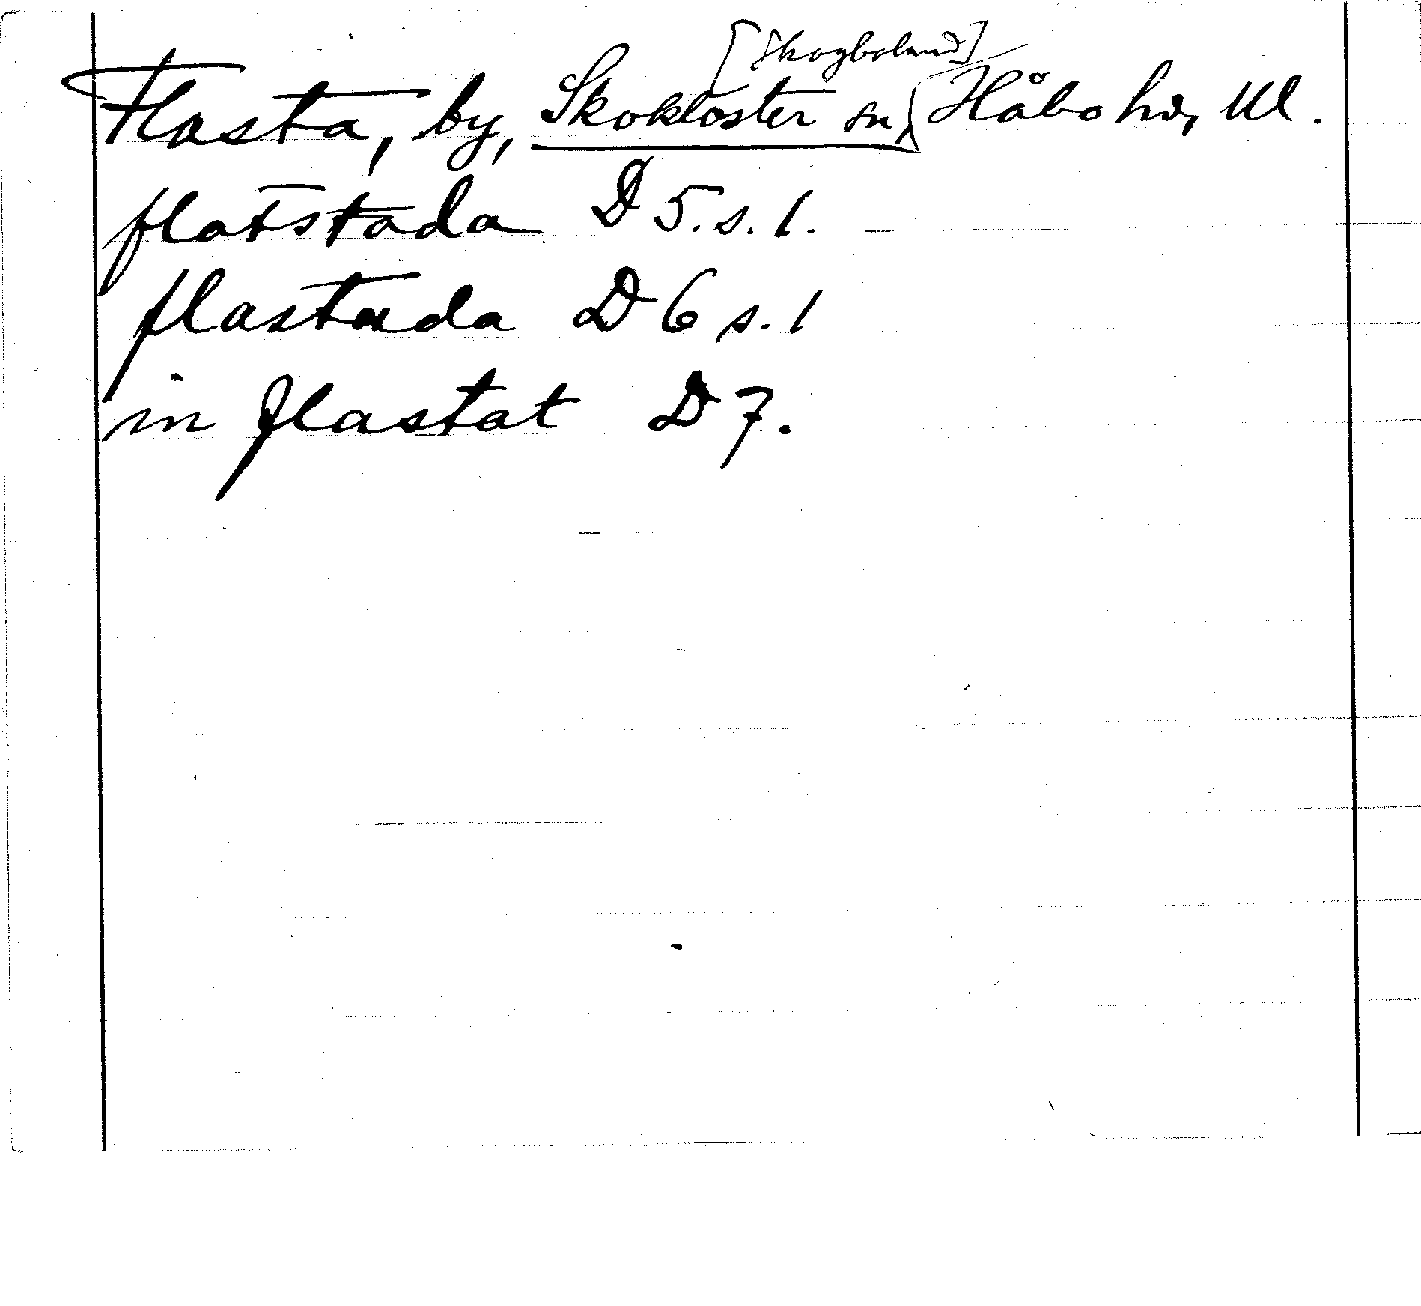 [Skogboland]
Flasta, by, Skokloster sn, Håbo hd, Ul.
flatstada D 5. s. 1.
flastada D 6 s. 1
in flastat D 7.